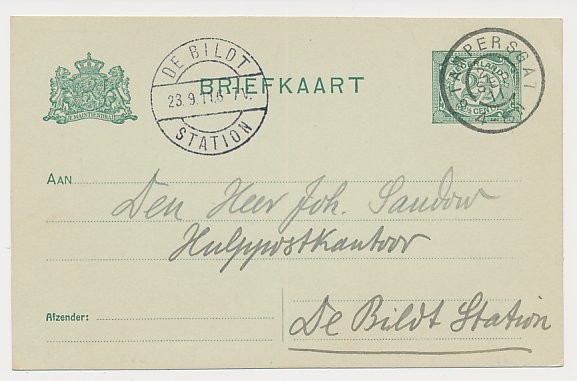 DE BILDT
23.9.11.6-7V.
STATION
BRIEFKAART
TRAPERSGAT
NEDERLAND
CENT
JE MAINTIENDRAI
AAN
Den Heer Joh. Sandow
Hulppostkantoor
Afzender:
De Bildt Station